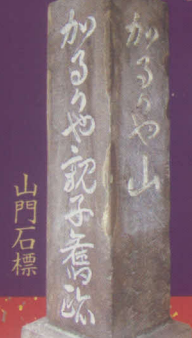 かるかや山
かるかや親子舊跡
山門石標